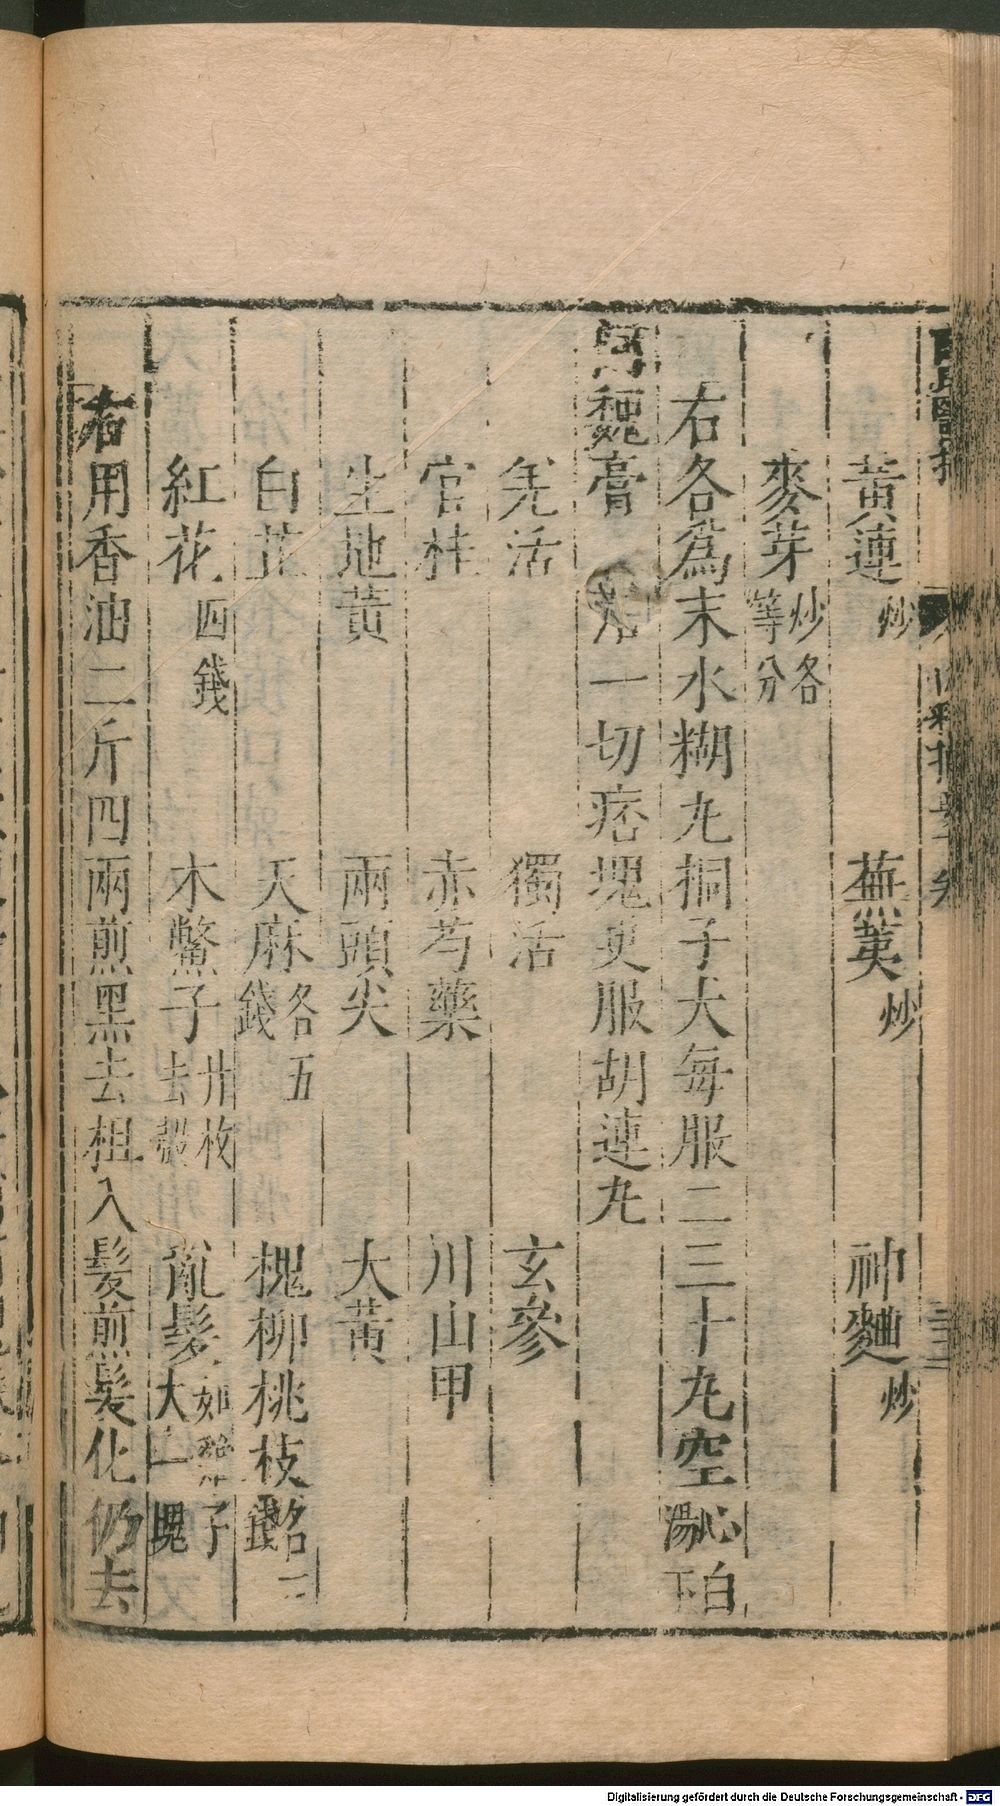 黃連炒 蕪荑炒 神麯炒
麥芽炒各等分
右各爲末水糊丸桐子大每服二三十丸空心白湯下
魏膏 治一切痞塊更服胡連丸
羌活 獨活 玄參
官桂 赤芍藥 川山甲
生地黃 兩頭尖 大黃
白芷 天麻各五錢 槐柳桃枝各二錢
紅花四錢 木鱉子廿枚去殼 亂髮如雞子大一塊
右用香油二斤四兩煎黑去柤入髮煎髮化仍去
Digitalisierung gefördert durch die Deutsche Forschungsgemeinschaft - DFG